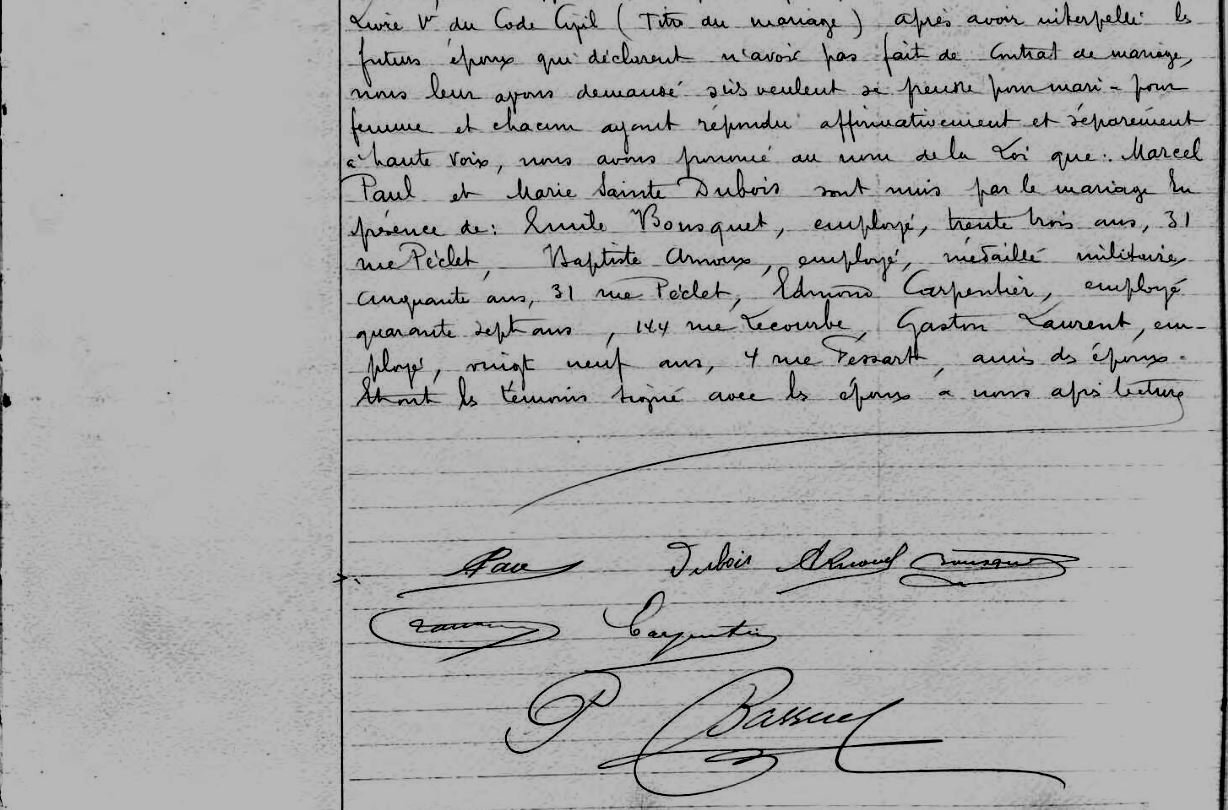 Livre Vᵉ du Code Civil (Titre du mariage) après avoir interpellé les
futurs époux qui déclarent n'avoir pas fait de Contrat de mariage,
nous leur avons demandé s'ils veulent se prendre pour mari - pour
femme et chacun ayant répondu affirmativement et séparément
à haute voix, nous avons prononcé au nom de la Loi que : Marcel
Paul et Marie Sainte Dubois sont unis par le mariage En
présence de : Emile Bousquet, employé, trente trois ans, 31
rue Péclet, Baptiste Arnoux, employé, médaillé militaire,
cinquante ans, 31 rue Péclet, Edmond Carpentier, employé
quarante sept ans, 144 rue Lecourbe, Gaston Laurent, em-
ployé, vingt neuf ans, 4 rue Fessart, amis des époux -
et ont les témoins signé avec les époux & nous après lecture
Dubois Bousquet
Carpentier
P Bassuel